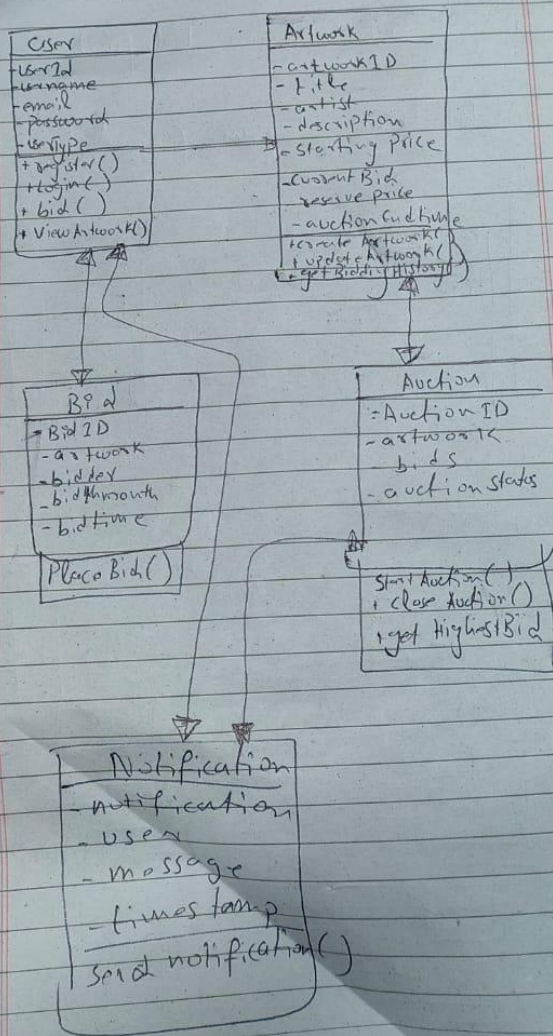 User
-userId
-username
-email
-password
-userType
+ register()
+ Login()
+ bid()
+ ViewArtwork()
Artwork
-artworkID
- title
-artist
-description
-Starting Price
-CurrentBid
reserve price
- auctionEndtime
+create Artwork()
+ updateArtwork()
+getBiddingHistory()
Bid
- BidID
-artwork
-bidder
-bidtime
PlaceBid()
Auction
-AuctionID
-artwork
bids
- auction status
Start Auction()
+ close Auction()
+get HighestBid
Notification
-notification
- user
- message
- timestamp
Send notification()